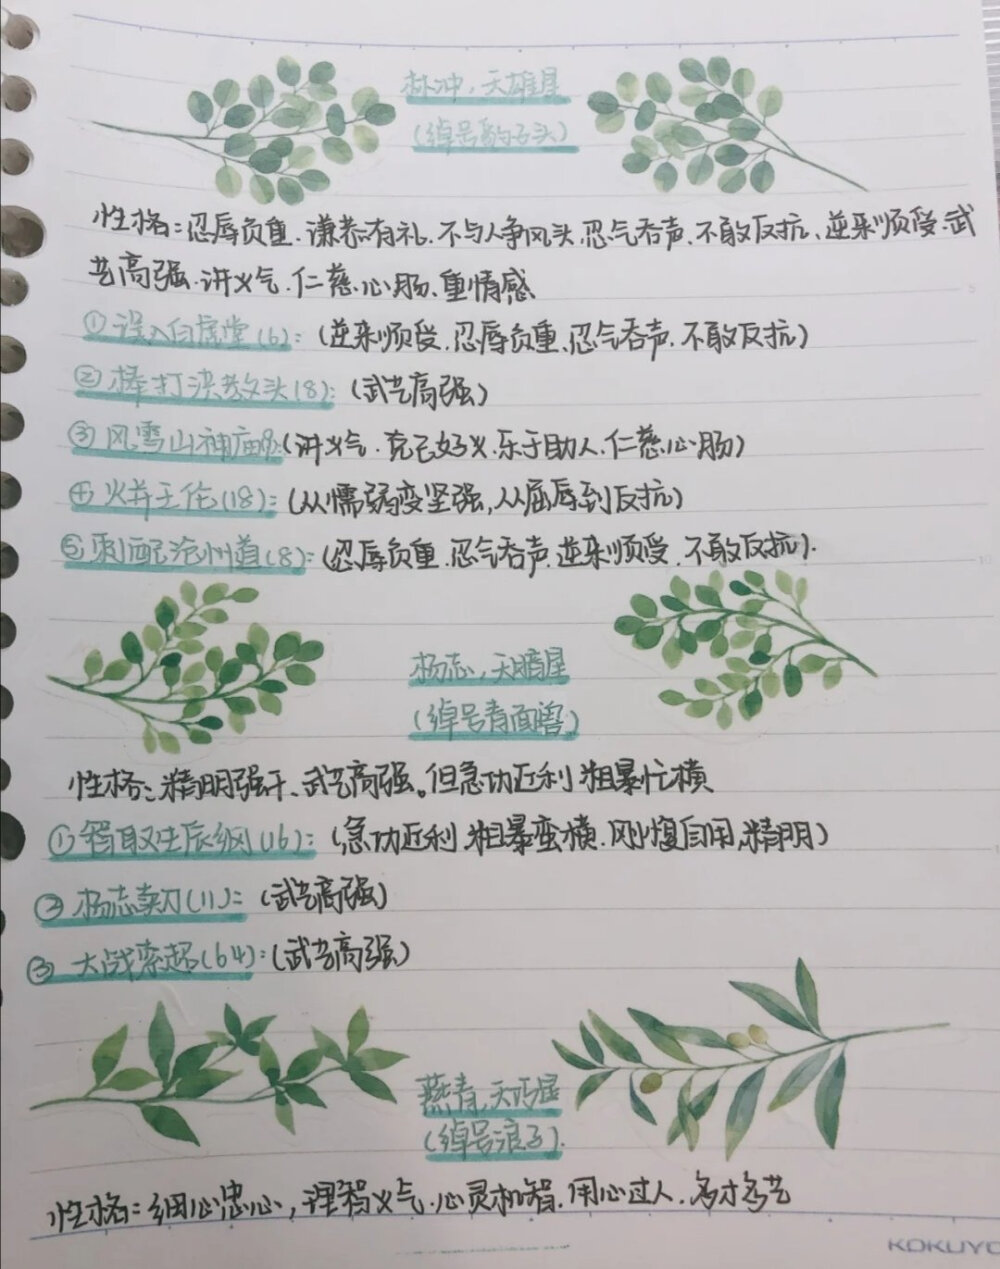 林冲，天雄星
（绰号豹子头）
性格：忍辱负重、谦恭有礼、不与人争风头、忍气吞声、不敢反抗、逆来顺受、武
艺高强、讲义气、仁慈心肠、重情感
①误入白虎堂(6)：（逆来顺受、忍辱负重、忍气吞声、不敢反抗）
②棒打洪教头(8)：（武艺高强）
③风雪山神庙9：（讲义气、克己好义、乐于助人、仁慈心肠）
④火并王伦(18)：（从懦弱变坚强，从屈辱到反抗）
⑤刺配沧州道(8)：（忍辱负重、忍气吞声、逆来顺受、不敢反抗）.
杨志，天暗星
（绰号青面兽）
性格：精明强干、武艺高强。但急功近利、粗暴忙横
①智取生辰纲(16)：（急功近利、粗暴蛮横、刚愎自用、精明）
②杨志卖刀(11)：（武艺高强）
③大战索超(64)：（武艺高强）
燕青，天巧星
（绰号浪子）.
性格：细心忠心，理智义气、心灵机智、用心过人、多才多艺
KOKUYO